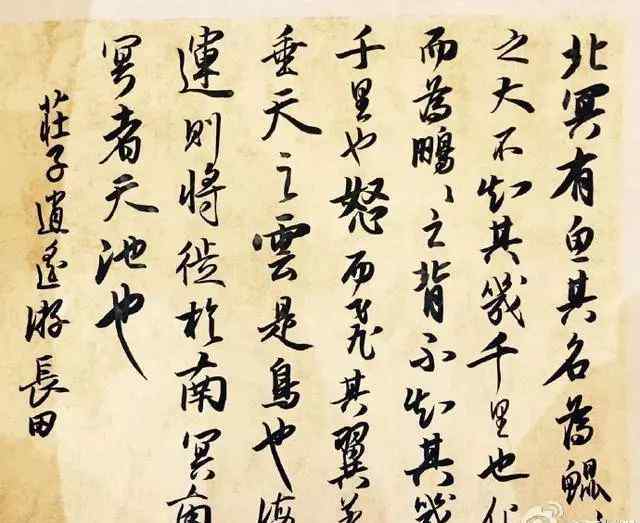 北冥有魚其名為鯤、
之大不知其幾千里也化
而為鵬、之背不知其幾
千里也怒而飛其翼若
垂天之雲是鳥也海
運則將徙於南冥南
冥者天池也
莊子逍遙游長田